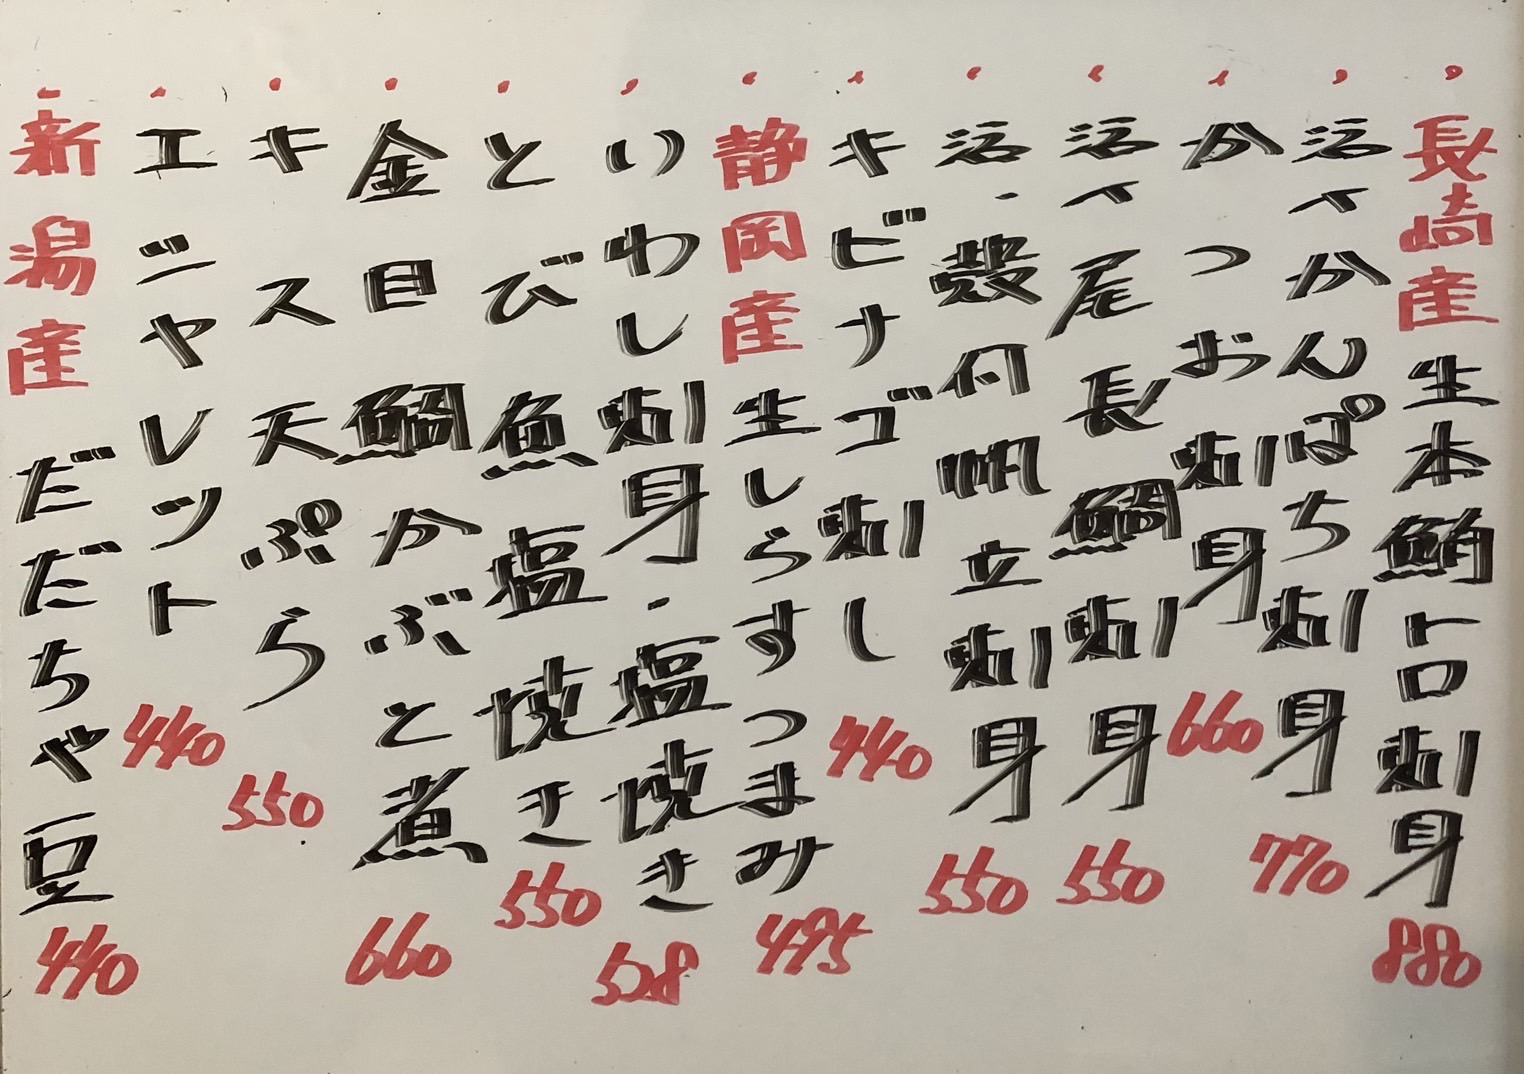 長崎産生本鮪トロ刺身 880
活〆かんぱち刺身 770
かつお刺身 660
活〆尾長鯛刺身 550
活・殻付帆立刺身 550
キビナゴ刺し 440
静岡産生しらすつまみ 495
いわし刺身・塩焼き 528
とび魚塩焼き 550
金目鯛かぶと煮 660
キス天ぷら 550
エシャレット 440
新潟産だだちゃ豆 440